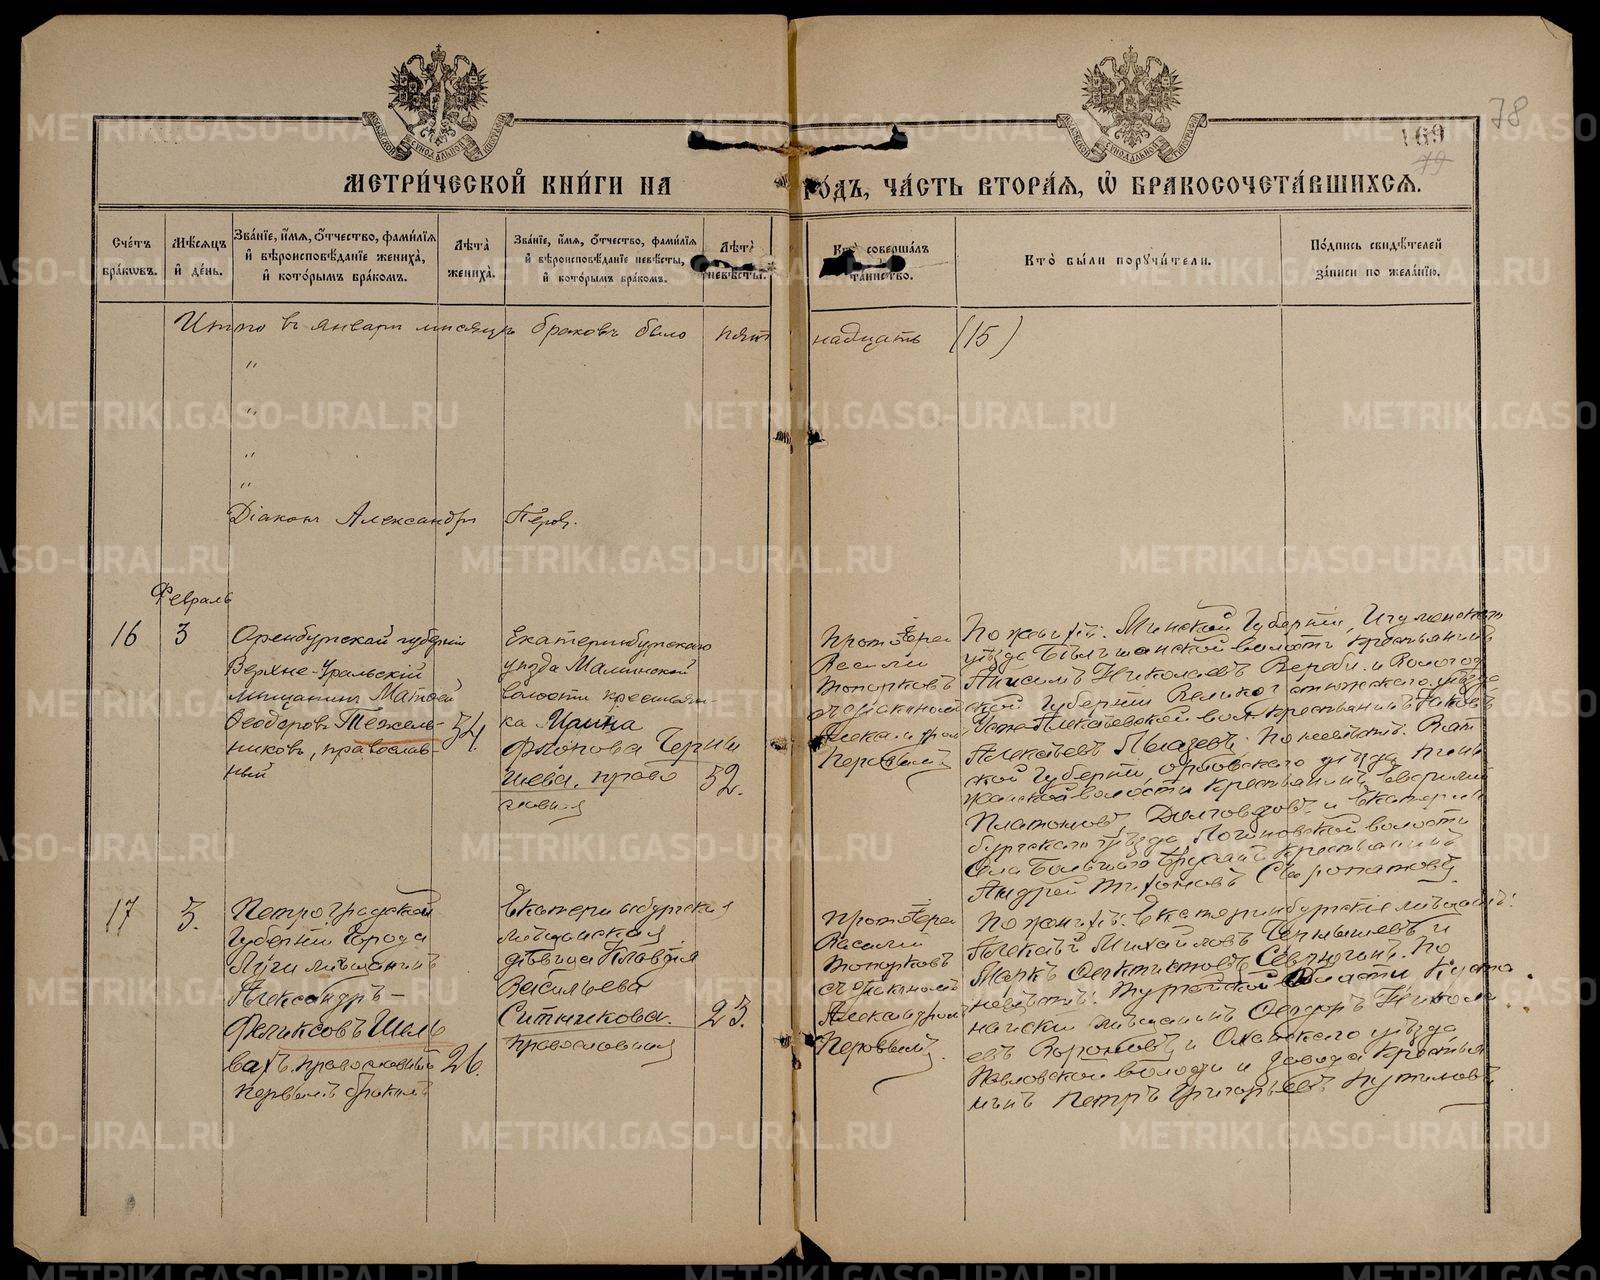 78
169
79
МЕТРИЧЕСКОЙ КНИГИ НА
РОДЪ, ЧАСТЬ ВТОРАЯ, Ѡ БРАКОСОЧЕТАВШИХСЯ.
Счетъ браковъ.
Мѣсяцъ и день.
Званіе, имя, отчество, фамилія и вѣроисповѣданіе жениха, и которымъ бракомъ.
Лѣта жениха.
Званіе, имя, отчество, фамилія и вѣроисповѣданіе невѣсты, и которымъ бракомъ.
Лѣта невѣсты.
Кто совершалъ таинство.
Кто были поручители.
Подпись свидѣтелей записи по желанію.
Итого въ январѣ мѣсяцѣ браковъ было пятнадцать (15)
"
"
"
"
Діаконъ Александръ Перов.
Февраль
16
3
Оренбургской губерніи
Верхне-Уральскій
мѣщанинъ Матѳей
Ѳеодоровъ
никовъ, православ-
ный
54.
Екатеринбургскаго
уѣзда
волости крестьян-
ка
Черны
шева, право
славная
52.
Протоіерей
Василій
Топорковъ
съ діакономъ
Перовымъ
По женихѣ: Минской губерніи, Игуменскаго
уѣзда волости крестьянинъ
Анисимъ Николаевъ и Вологод
ской губерніи Великоустюжскаго уѣзда
крестьянинъ Іаковъ
Алексѣевъ По невѣстѣ: Вят
ской губерніи, Орловскаго уѣзда
волости крестьянинъ
Платоновъ и Екатерин
бургскаго уѣзда Логиновской волости
села Большаго крестьянинъ
Андрей Тихоновъ
17
3.
Петроградской
губерніи города
Луги мѣщанинъ
Александръ
Феликсовъ
православный
первымъ бракомъ
26.
Екатеринбургская
мѣщанская
дѣвица Клавдія
Васильева
Ситникова.
православная
23.
Протоіерей
Василій
Топорковъ
съ діакономъ
Александромъ
Перовымъ.
По женихѣ: Екатеринбургскіе мѣщане:
Алексѣй Михайловъ Чернышевъ и
Маркъ Ѳеоктистовъ По
невѣстѣ: Тургайской области Куста
найскій мѣщанинъ Ѳеодоръ Никола
евъ и Оханскаго уѣзда
Павловской волости и завода крестья
нинъ Петръ Григорьевъ Путиловъ
METRIKI.GASO-URAL.RU